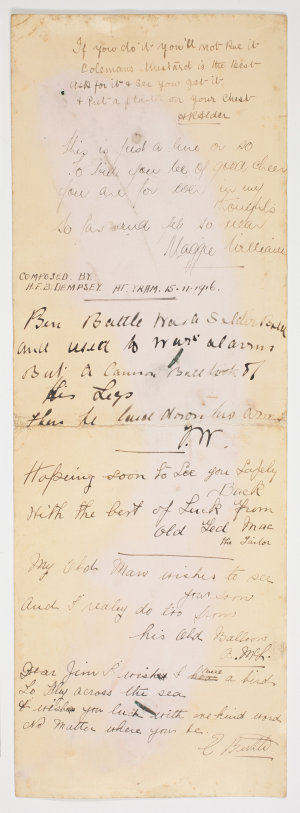 If you do it you'll not Rue it
Colemans Mustard is the Best
ask for it & see you get it
& Put a plaster on your Chest
A R Alder
This is just a line or so
To bid you be of good cheer
you are for ever in my
Thoughts
So far and yet so near
Maggie Williams
COMPOSED BY
H.F.B. DEMPSEY. AT. TRAM. 15-11-1916.
Ben Battle was a Solder
and used to wars alarms
But a Cannon Ball took of
his Legs
then he laid down his arms
T.W.
Hopeing soon to see you Safely
Back
With the best of Luck from
Old Ted Mac
the Tailor
My Old Man wishes to see
you soon
And I realey do too from
his Old Balloon
Dear Jim I wish I were a bird
To Fly across the sea
& wish you luck with one kind word
No Matter where you be.